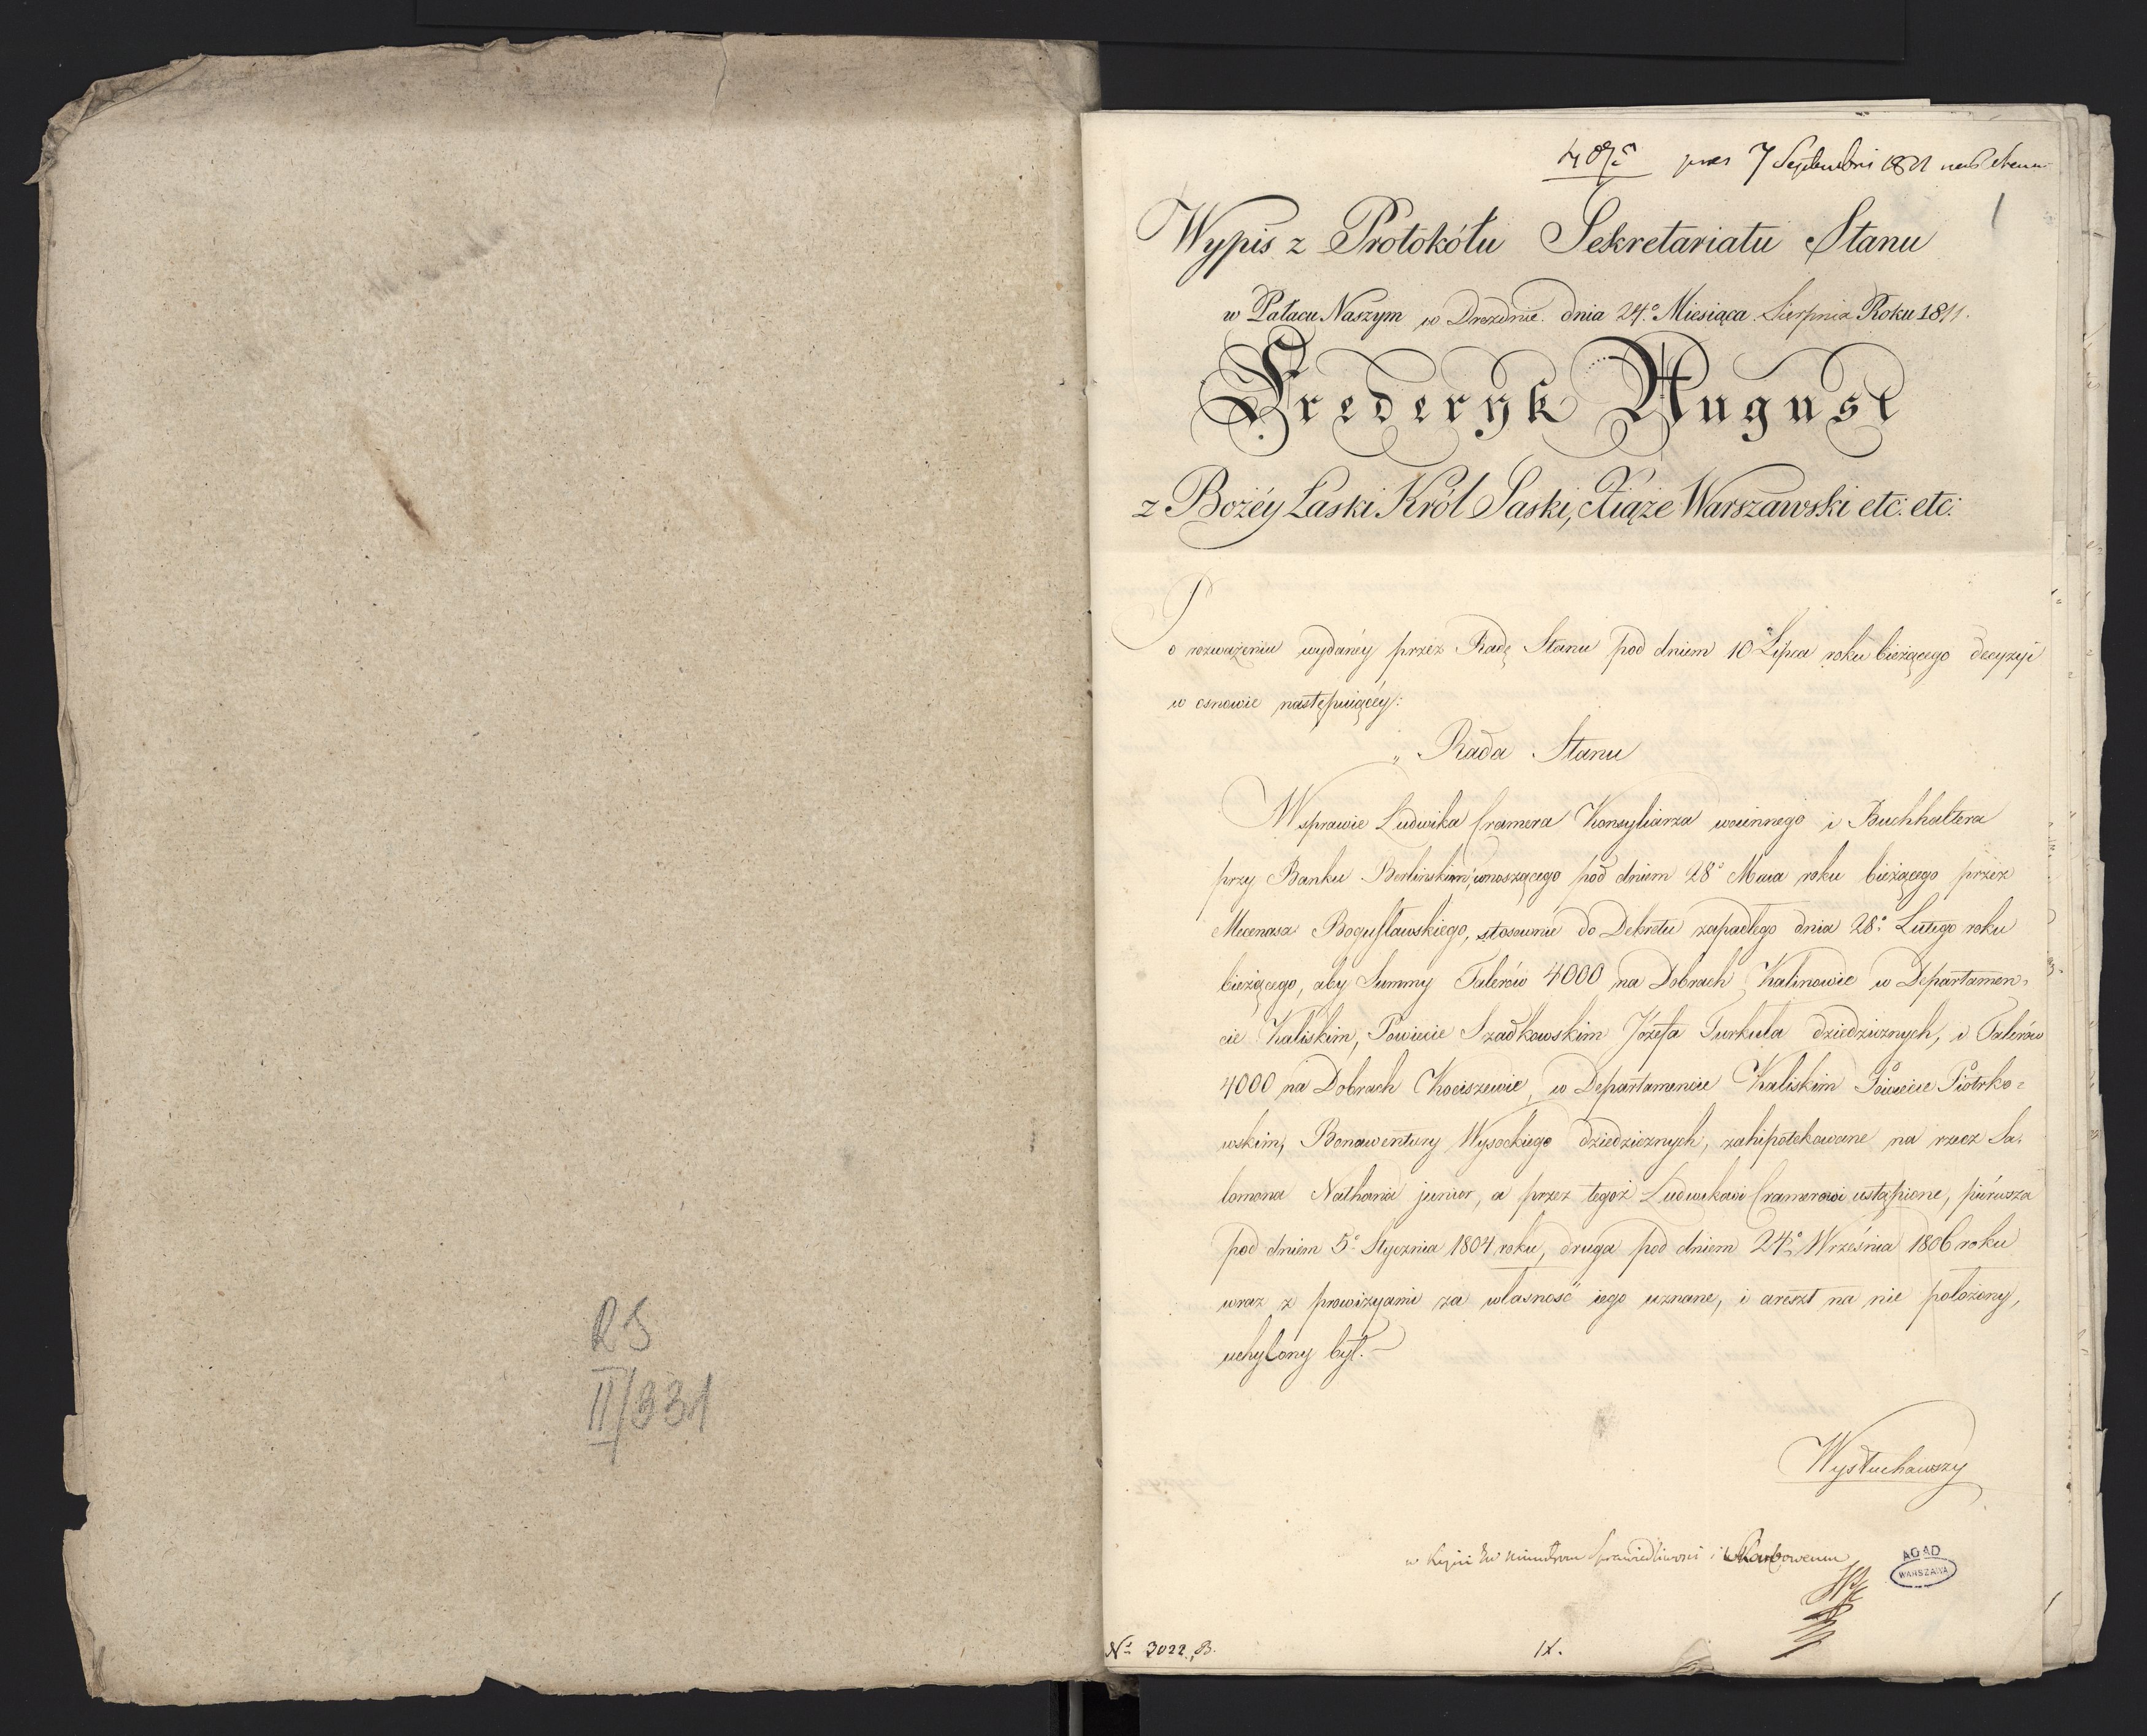 RS
II/331
pres 7 Septembris 1811
1
Wypis z Protokółu Sekretariatu Stanu
w Pałacu Naszym w Dreźnie dnia 24º Miesiąca Sierpnia Roku 1811.
Frederyk August
z Bożéy Łaski Król Saski, Xiąże Warszawski etc: etc:
Po rozważeniu wydanéy przez Radę Stanu pod dniem 10º Lipca roku bieżącego decyzyi
w osnowie następuiącéy:
„ Rada Stanu
W sprawie Ludwika Cramera Konsyliarza woiennego i Buchhaltera
przy Banku Berlińskim, wnoszącego pod dniem 28º Maia roku bieżącego przez
Mecenasa Bogusławskiego, stosownie do Dekretu zapadłego dnia 28º Lutego roku
bieżącego, aby Summy Talerów 4000 na Dobrach Kalinowie w Departamen-
cie Kaliskim, Powiecie Szadkowskim Józefa Turkuła dziedzicznych, i Talerów
4000 na Dobrach Kociszewie, w Departamencie Kaliskim Powiecie Piotrko-
wskim, Bonawentury Wysockiego dziedzicznych, zahipotekowane na rzecz Sa-
lomona Nathana junior, a przez tegoż Ludwikowi Cramerowi ustąpione, piérwsza
pod dniem 5º Stycznia 1804 roku, druga pod dniem 24º Września 1806 roku
wraz z prowizyami za własność iego uznane, i areszt na nie położony,
uchylony był.
Wysłuchawszy
w kopii Ministrom Sprawiedliwości i Skarbowemu
AGAD
WARSZAWA
Nº 3022. B.
IX.